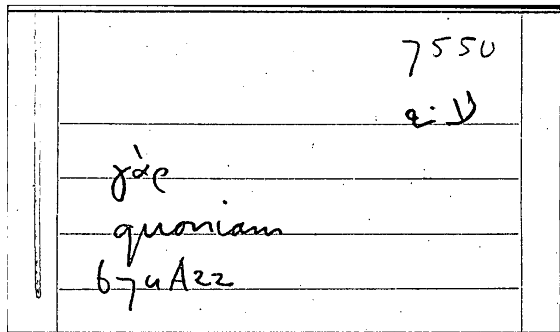 7550
γὰρ
quoniam
674A22